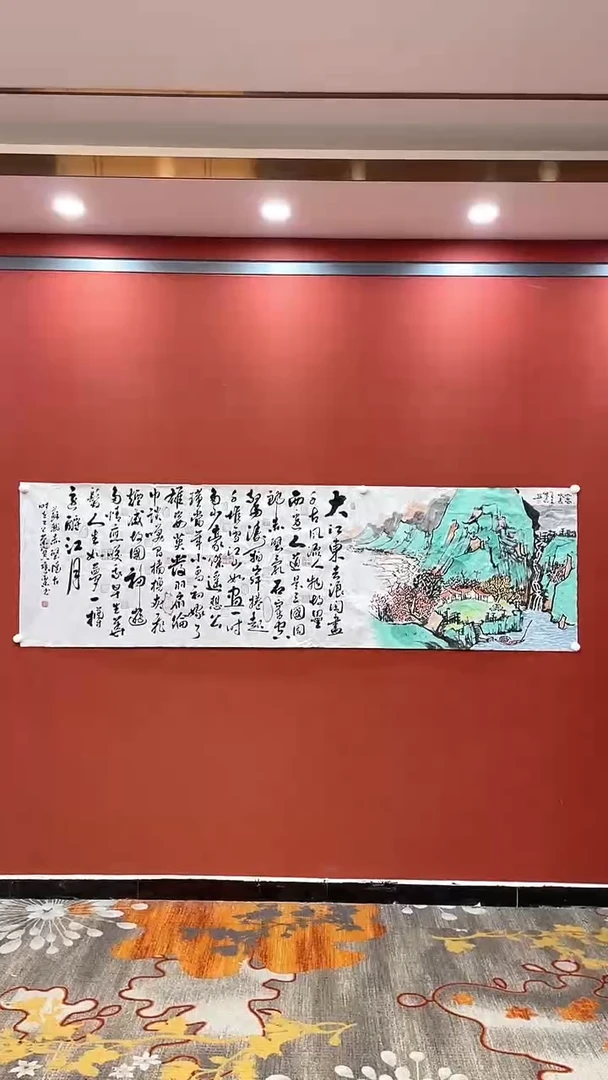 大江東去浪淘盡
千古風流人物故壘
西邊人道是三國周
郎赤壁亂石穿空
驚濤拍岸捲起
千堆雪江山如畫一時
多少豪傑遙想公
瑾當年小喬初嫁了
雄姿英發羽扇綸
巾談笑間檣櫓灰飛
煙滅故國神遊
多情應笑我早生華
髮人生如夢一樽
還酹江月
蘇軾赤壁懷古